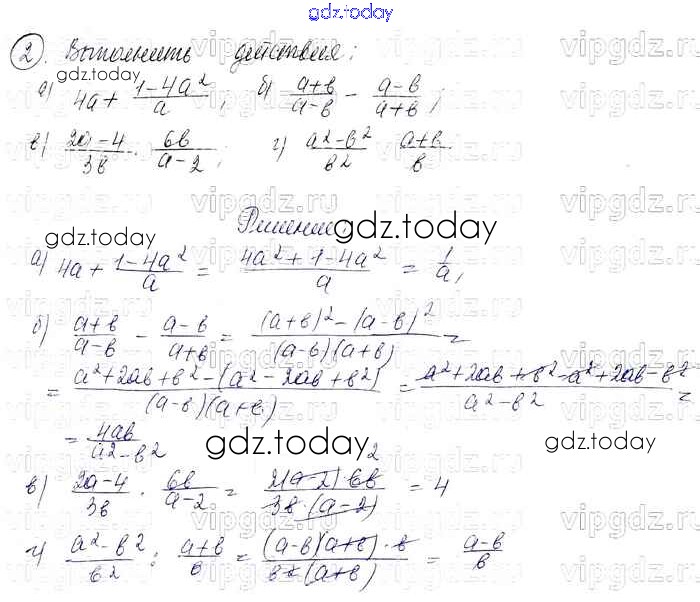 gdz.today
2. Выполнить действия:
gdz.today
а) 4a + (1-4a²)/a; б) (a+b)/(a-b) - (a-b)/(a+b);
в) (2a-4)/3b · 6b/(a-2); г) (a²-b²)/b² : (a+b)/b
Решение:
gdz.today
gdz.today
а) 4a + (1-4a²)/a = (4a²+1-4a²)/a = 1/a;
б) (a+b)/(a-b) - (a-b)/(a+b) = ((a+b)²-(a-b)²)/((a-b)(a+b)) =
= (a²+2ab+b²-(a²-2ab+b²))/((a-b)(a+b)) = (a²+2ab+b²-a²+2ab-b²)/(a²-b²) =
= 4ab/(a²-b²)
gdz.today
gdz.today
в) (2a-4)/3b · 6b/(a-2) = (2(a-2)·6b)/(3b·(a-2)) = 4
г) (a²-b²)/b² : (a+b)/b = ((a-b)(a+b)·b)/(b²(a+b)) = (a-b)/b
vipgdz.ru